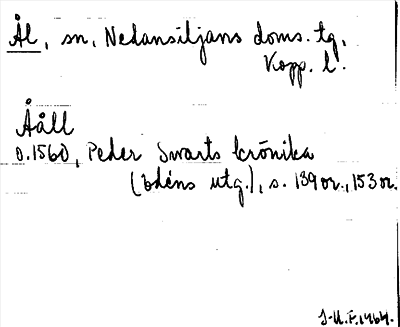 Ål, sn, Nedansiljans doms. tg,
Kopp. l.
Ååll
o.1560, Peder Swarts krönika
(Edéns utg.), s. 139 or., 153 or.
J-U.F. 1964.